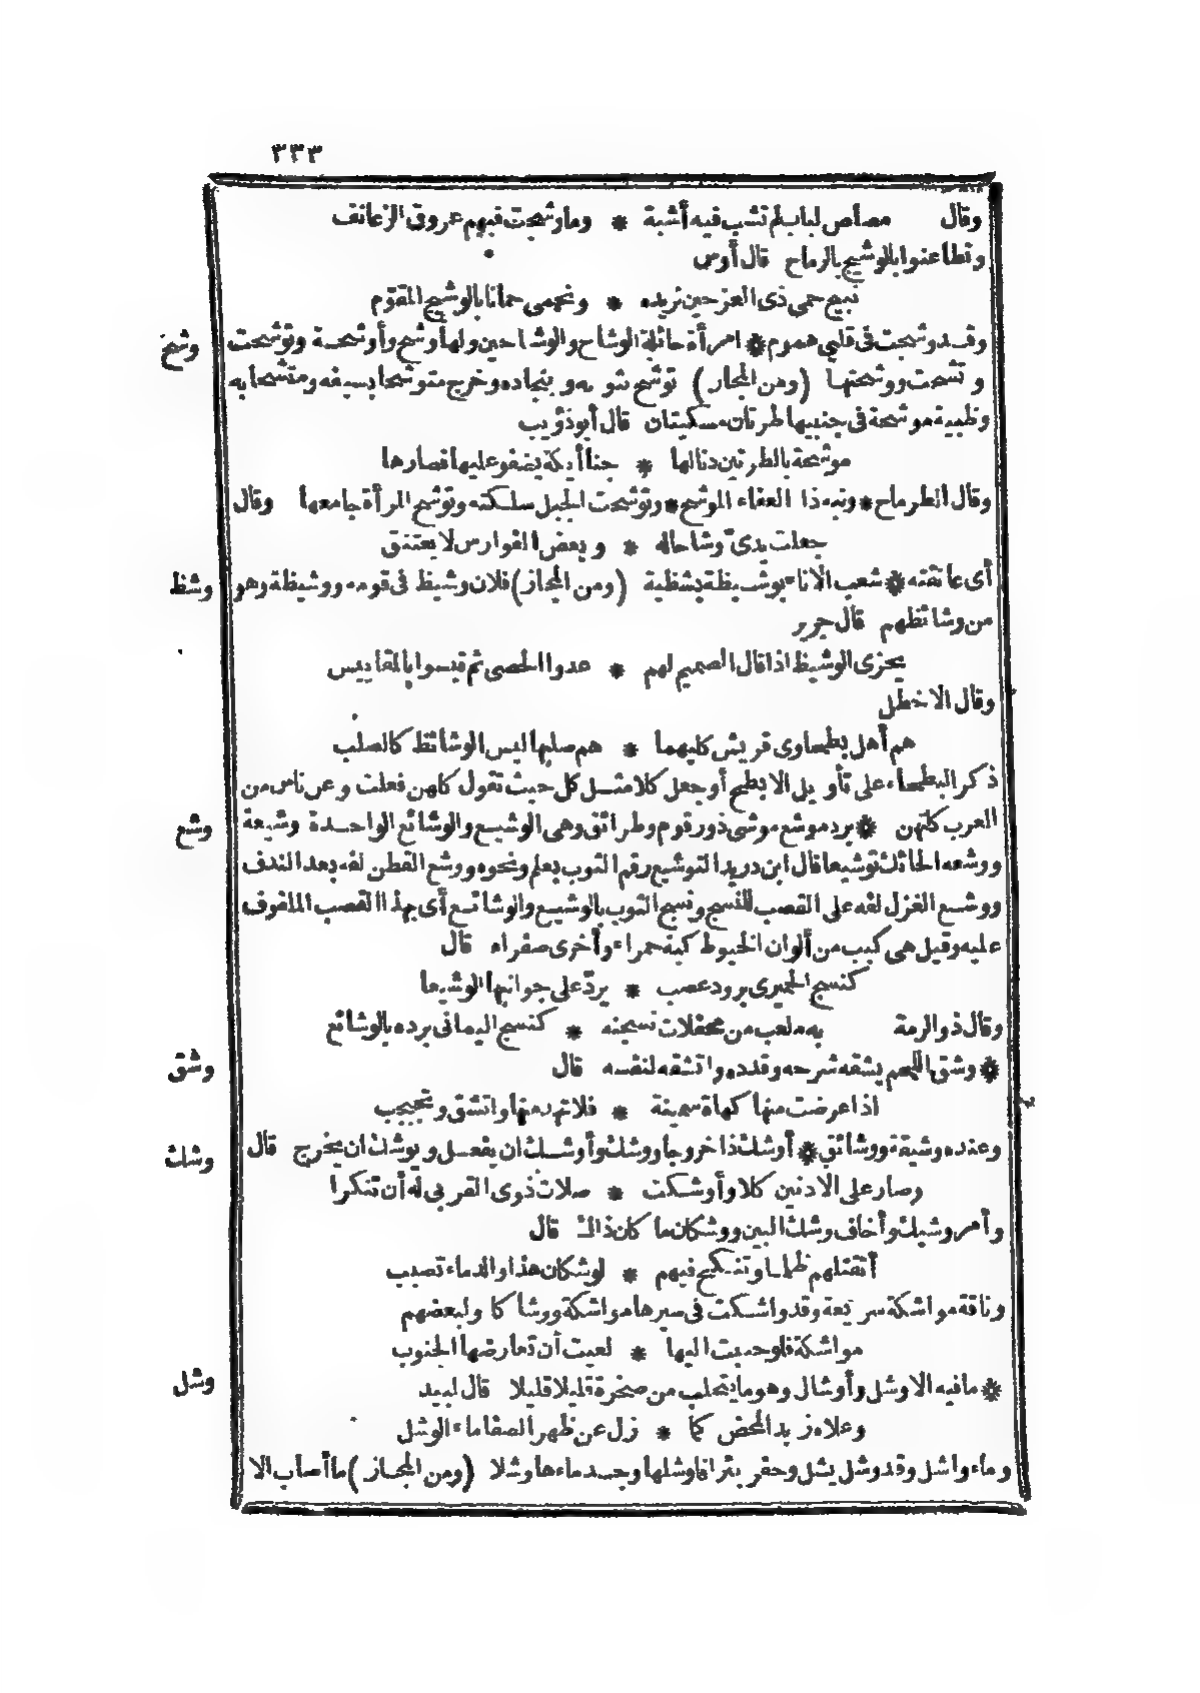 ٣٣٣
وقال مصاص لباب لم تشب فيه أشبة * وما وشجت فيهم عروق الزعانف
وتطاعنوا بالوشيج بالرماح قال أوس
نبيح حمى ذى العز حين نريده * ونحمى حمانا بالوشيج المقوّم
وقد وشجت فى قلبى هموم * امرأة جائلة الوشاح والوشاحين ولها وشح وأوشحة وتوشحت
وشح
واتشحت ووشحتها (ومن المجاز) توشح بثوبه وبنجاده وخرج متوشحا بسيفه ومتشحا به
وظبية موشحة فى جنبيها طرتان مسكيتان قال أبو ذؤيب
موشحة بالطرتين دنا لها * جنا أيكة يضفو عليها قصارها
وقال الطرماح * ونبه ذا العفاء الموشح * وتوشحت الجبل سلكته وتوشح المرأة جامعها وقال
جعلت يدىّ وشاحا له * وبعض الفوارس لا يعتنق
أى عانقته * شعب الاناء بوشيظة بشظية (ومن المجاز) فلان وشيظ فى قومه ووشيظة وهو
وشظ
من وشائظهم قال جرير
يخزى الوشيظ اذا قال الصميم لهم * عدوا الحصى ثم قيسوا بالمقاييس
وقال الاخطل
هم أهل بطحاوى قريش كليهما * هم صلبها ليس الوشائظ كالصلب
ذكر البطحاء على تأويل الابطح أو جعل كلا مثل كل حيث تقول كلهن فعلت وعن ناس من
العرب كلتهن * برد موشع موشى ذو رقوم وطرائق وهى الوشيع والوشائع الواحدة وشيعة
وشع
ووشعه الحائك توشيعا قال ابن دريد التوشيع رقم الثوب بعلم ونحوه ووشع القطن لفه بعد الندف
ووشع الغزل لفه على القصب للنسج ونسج الثوب بالوشيع والوشائع أى بهذا القصب الملفوف
عليه وقيل هى كبب من ألوان الخيوط كبة حمراء وأخرى صفراء قال
كنسج الحميرى برود عصب * يردّ على جوانبها الوشيعا
وقال ذو الرمة به ملعب من محفلات نسجنه * كنسج اليمانى برده بالوشائع
* وشق اللحم يشقه شرحه وقدده واتشقه لنفسه قال
وشق
اذا عرضت منها كهاة سمينة * فلا تهد منها واتشق وتجبجب
وعنده وشيقة ووشائق * أوشك ذا خروجا ووشك وأوشك ان يفعل ويوشك ان يخرج قال
وشك
وصار على الادنين كلا وأوشكت * صلات ذوى القربى له أن تنكرا
وأمر وشيك وأخاف وشك البين ووشكان ما كان ذاك قال
أتقتلهم ظلما وتنكح فيهم * لوشكان هذا والدماء تصبب
وناقة مواشكة سريعة وقد واشكت فى سيرها مواشكة ووشاكا ولبعضهم
مواشكة فلو جنبت اليها * لعيت أن تعارضها الجنوب
* ما فيه الا وشل وأوشال وهو ما يتحلب من صخرة قليلا قليلا قال لبيد
وشل
وعلاه زبد المحض كما * زل عن ظهر الصفا ماء الوشل
وماء واشل وقد وشل يشل وحفر بئرا فاوشلها وجد ماءها وشلا (ومن المجاز) ما أصاب الا